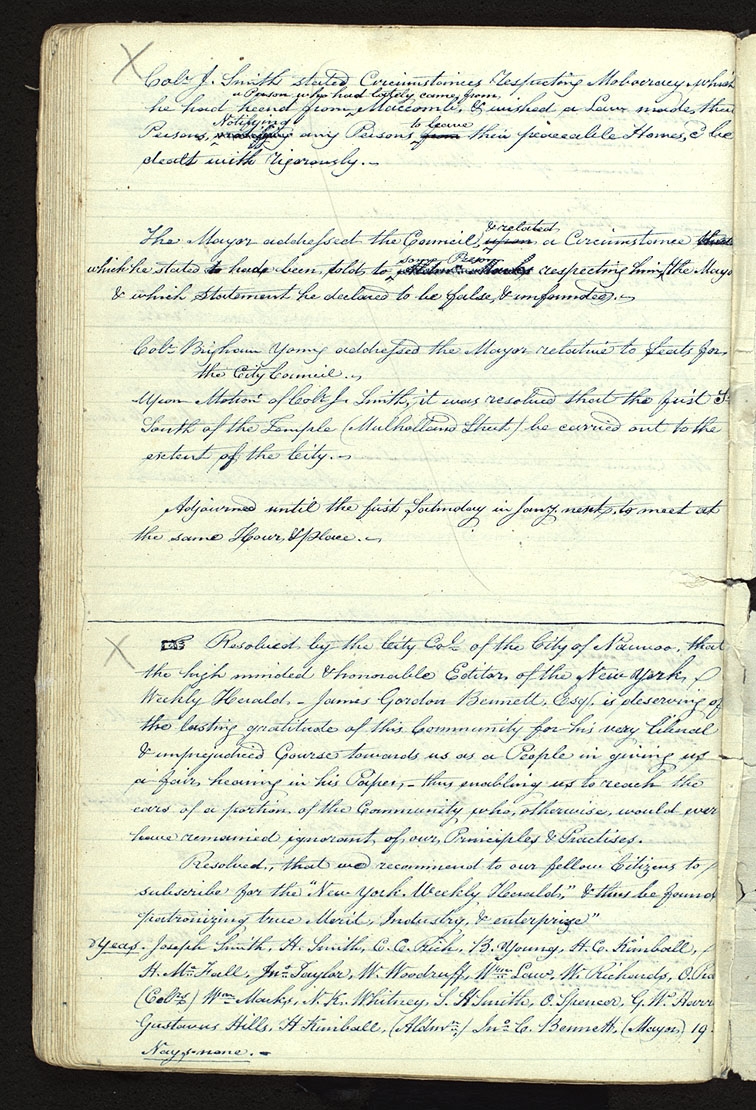 Colr. J. Smith stated Circumstances respecting Mobocracy which
a Person who had lately came from
he had heend from Maccomb, & wished a Law made, that
Notifying to leave
Persons, any Persons from their peaceable Homes, & be
dealt with rigorously.—
& related
The Mayor addressed the Council, upon a Circumstance
some Person
which he stated to have been told, to respecting him, the Mayo
& which Statement he declared to be false, & unfounded.—
Colr. Brigham Young addressed the Mayor relative to Seats for
the City Council.—
Upon Motion of Colr. J. Smith, it was resolved that the first St
South of the Temple (Mulholland Street) be carried out to the
extent of the City.—
Adjourned until the first Saturday in Jany. next, to meet at
the same Hour, & place.—
Resolved by the City Col. of the City of Nauvoo, that
the high minded & honorable Editor, of the New York,
Weekly Herald,— James Gordon Bennett, Esqr. is deserving of
the lasting gratitude of this Community for his very liberal
& unprejudiced Course towards us as a People in giving us
a fair hearing in his Paper,— thus enabling us to reach the
ears of a portion of the Community who, otherwise, would ever
have remained ignorant of our Principles & Practises.
Resolved, that we recommend to our fellow Citizens to
subscribe for the "New York Weekly Herald," & thus be found
patronizing true Merit, Industry, & enterprize"
Yeas. Joseph Smith, H. Smith, C. C. Rich, B. Young, H. C. Kimball,
H. McFall, Jno. Taylor, W. Woodruff, Wm. Law, W. Richards, O. Pra
(Colrs.) Wm. Marks, N. K. Whitney, S. H. Smith, O. Spencer, G. W. Harri
Gustavus Hills, H Kimball, (Aldmn.) Jno. C. Bennett, (Mayor) 19.
Nays—none.—